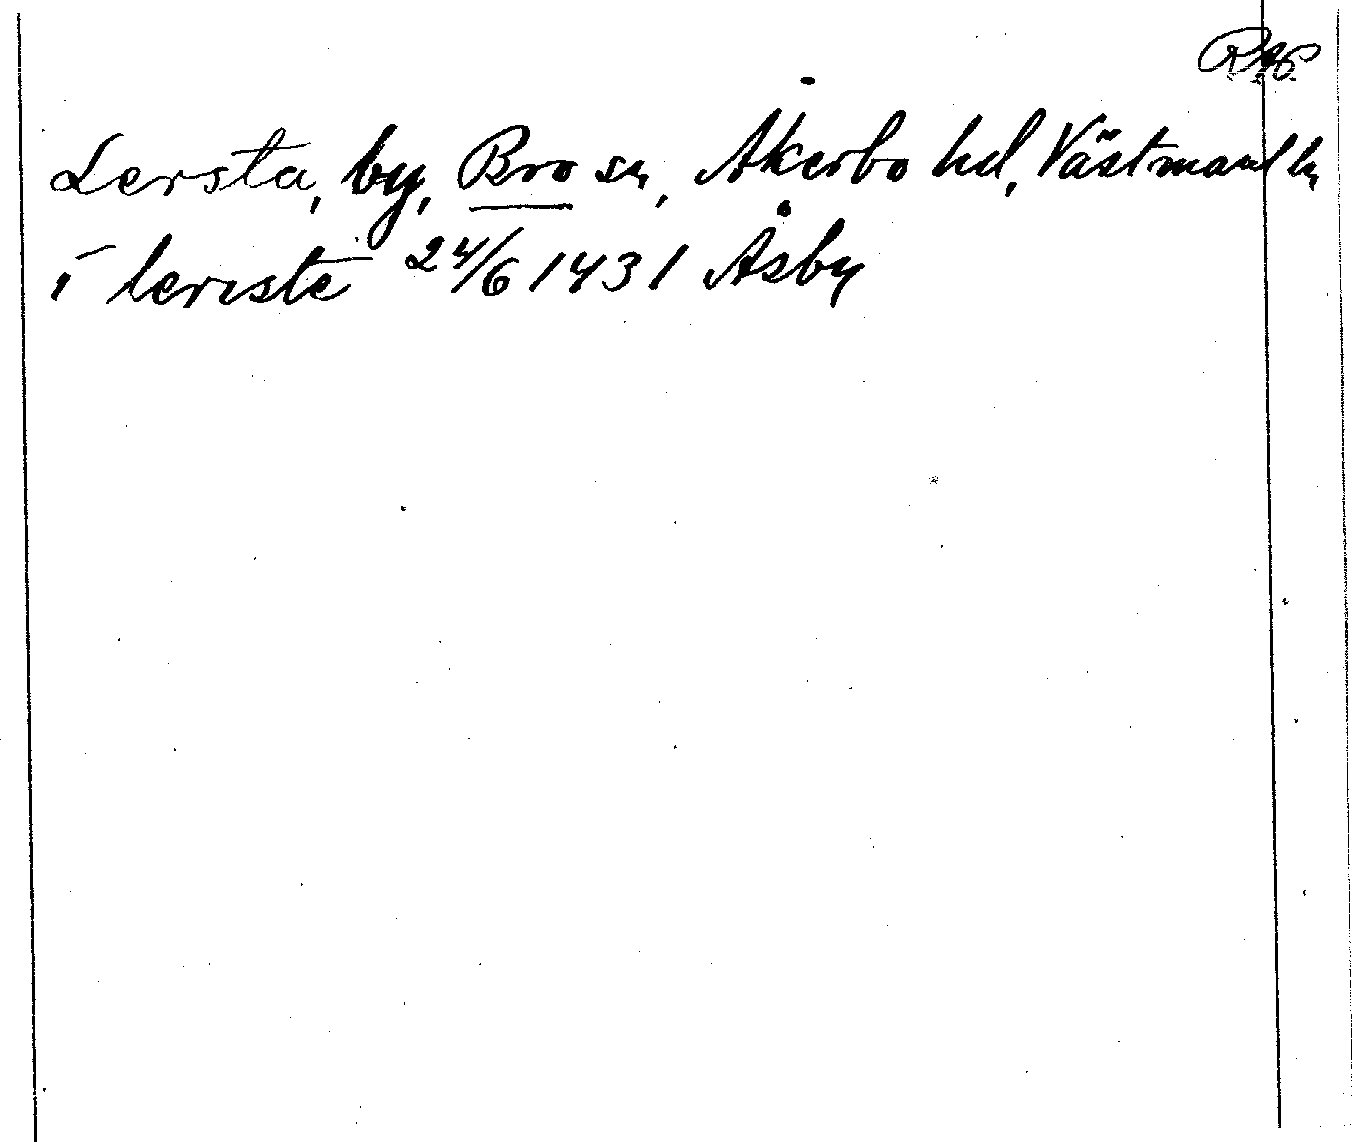 Lersta, by, Bro sn, Åkerbo hd, Västmanl ln
i leriste 24/6 1431 Åsby